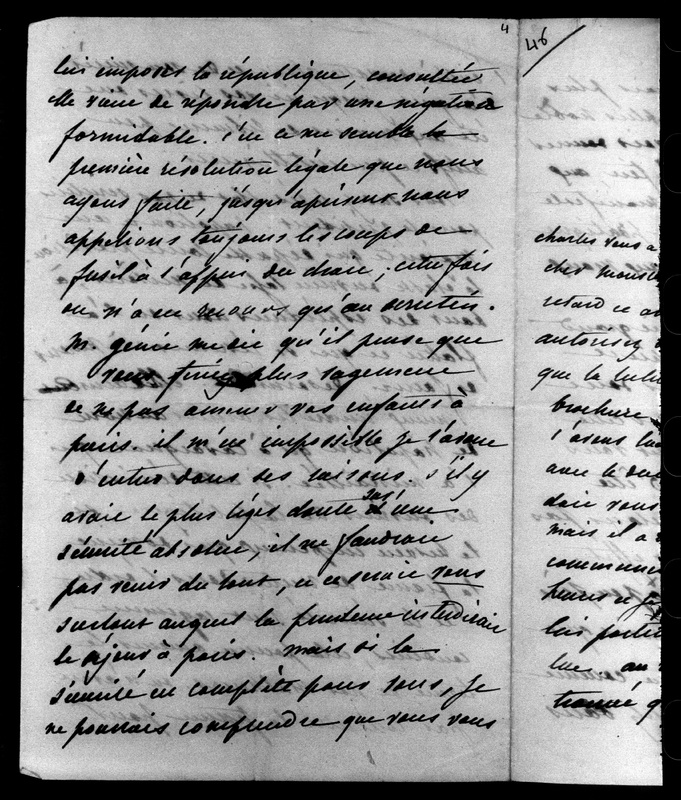 4
46
lui imposer la république, consultée
elle vient de répondre par une négative
formidable. C'est ce me semble la
première révolution légale que nous
ayons faite, jusqu'à présent nous
appelions toujours les coups de
fusil à l'appui du droit, cette fois
on n'a eu recours qu'au scrutin.
M. génie me dit qu'il pense que
vous feriez plus sagement
de ne pas amener vos enfants à
paris. il m'est impossible je l'avoue
d'entrer dans ses raisons. S'il y
avait le plus léger doute sur une
sécurité absolue, il ne faudrait
pas venir du tout, et ce serait vous
surtout auquel la prudence interdirait
le séjour à paris. Mais si la
sécurité est complète pour vous, je
ne pourrais comprendre que vous vous
charles vous a
cher monsie
retard ce
autorisez
que la
brochure
l'avons lue
avec le
vous
mais il a
commencé
heures

lui
lues au
trouvé q